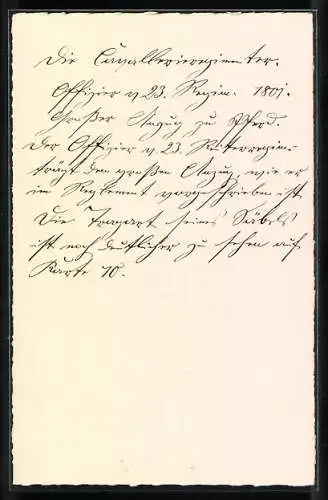 Die Cavallerieregimenter.
Offizier v 23. Regim. 1801.
Großer Anzug zu Pferd.
Der Offizier v. 23. Reiterregim.
trägt den großen Anzug, wie er
im Reglement vorgeschrieben ist.
Die Tragart seines Säbels
ist noch deutlicher zu sehen auf
Karte 10.